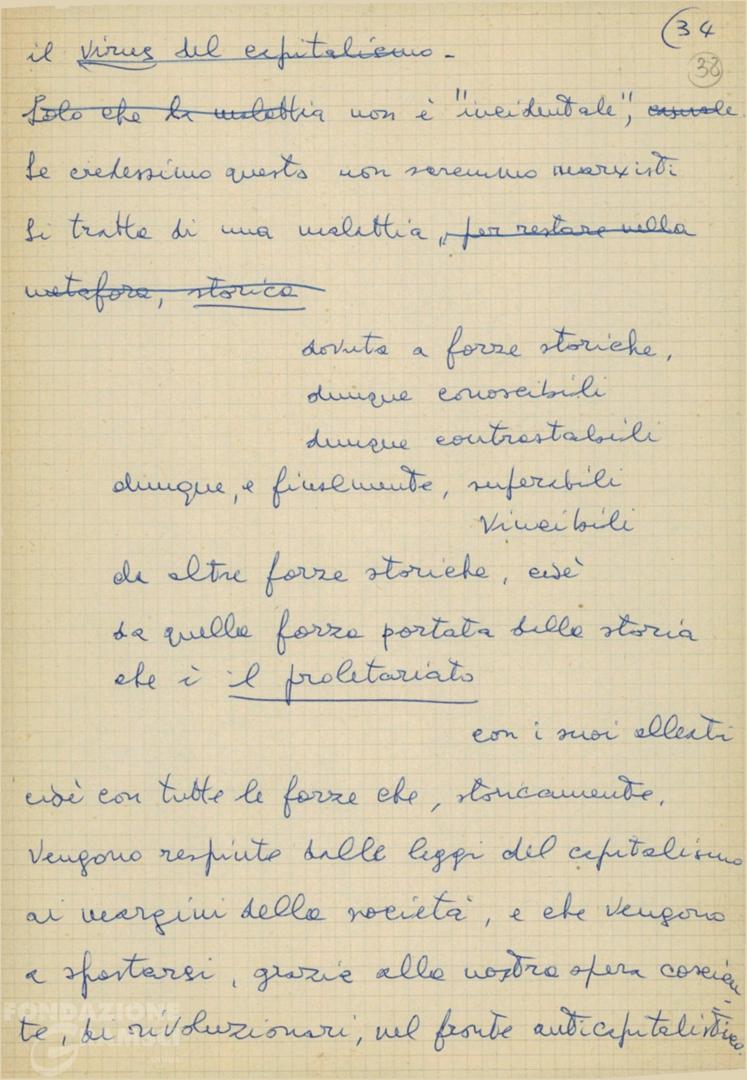 (34
38
il virus del capitalismo -
Solo che la malattia non è "incidentale", casuale.
Se credessimo questo non saremmo marxisti
Si tratta di una malattia, per restare nella
metafora, storica
dovuta a forze storiche,
dunque conoscibili
dunque contrastabili
dunque, e finalmente, superabili
Vincibili
da altre forze storiche, cioè
da quella forza portata dalla storia
che è il proletariato
con i suoi alleati
cioè con tutte le forze che, storicamente,
vengono respinte dalle leggi del capitalismo
ai margini della società, e che vengono
a spostarsi, grazie alla nostra opera coscien-
te, di rivoluzionari, nel fronte anticapitalistico.
FONDAZIONE